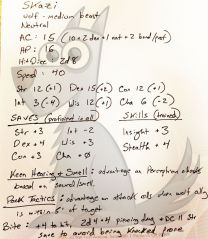 Skazi
wolf - medium beast
Neutral
AC: 15 (10 + 2 dex + 1 nat + 2
AP: 16
Hit Dice: 2d8
Speed: 40
Str 12 (+1) Dex 15 (+2) Con 12 (+1)
Int 3 (-4) Wis 12 (+1) Cha 6 (-2)
SAVES (proficient in all) Skills (trained)
Str +3 Int -2 Insight +3
Dex +4 Wis +3 Stealth +4
Con +3 Cha +0
Keen Hearing & Smell: advantage on Perception checks
based on sound/smell.
Pack Tactics: advantage on attack rolls when wolf ally
is within 5' of target
Bite: +4 to hit, 2d4+4 piercing dmg + DC 11 Str
save to avoid being knocked prone